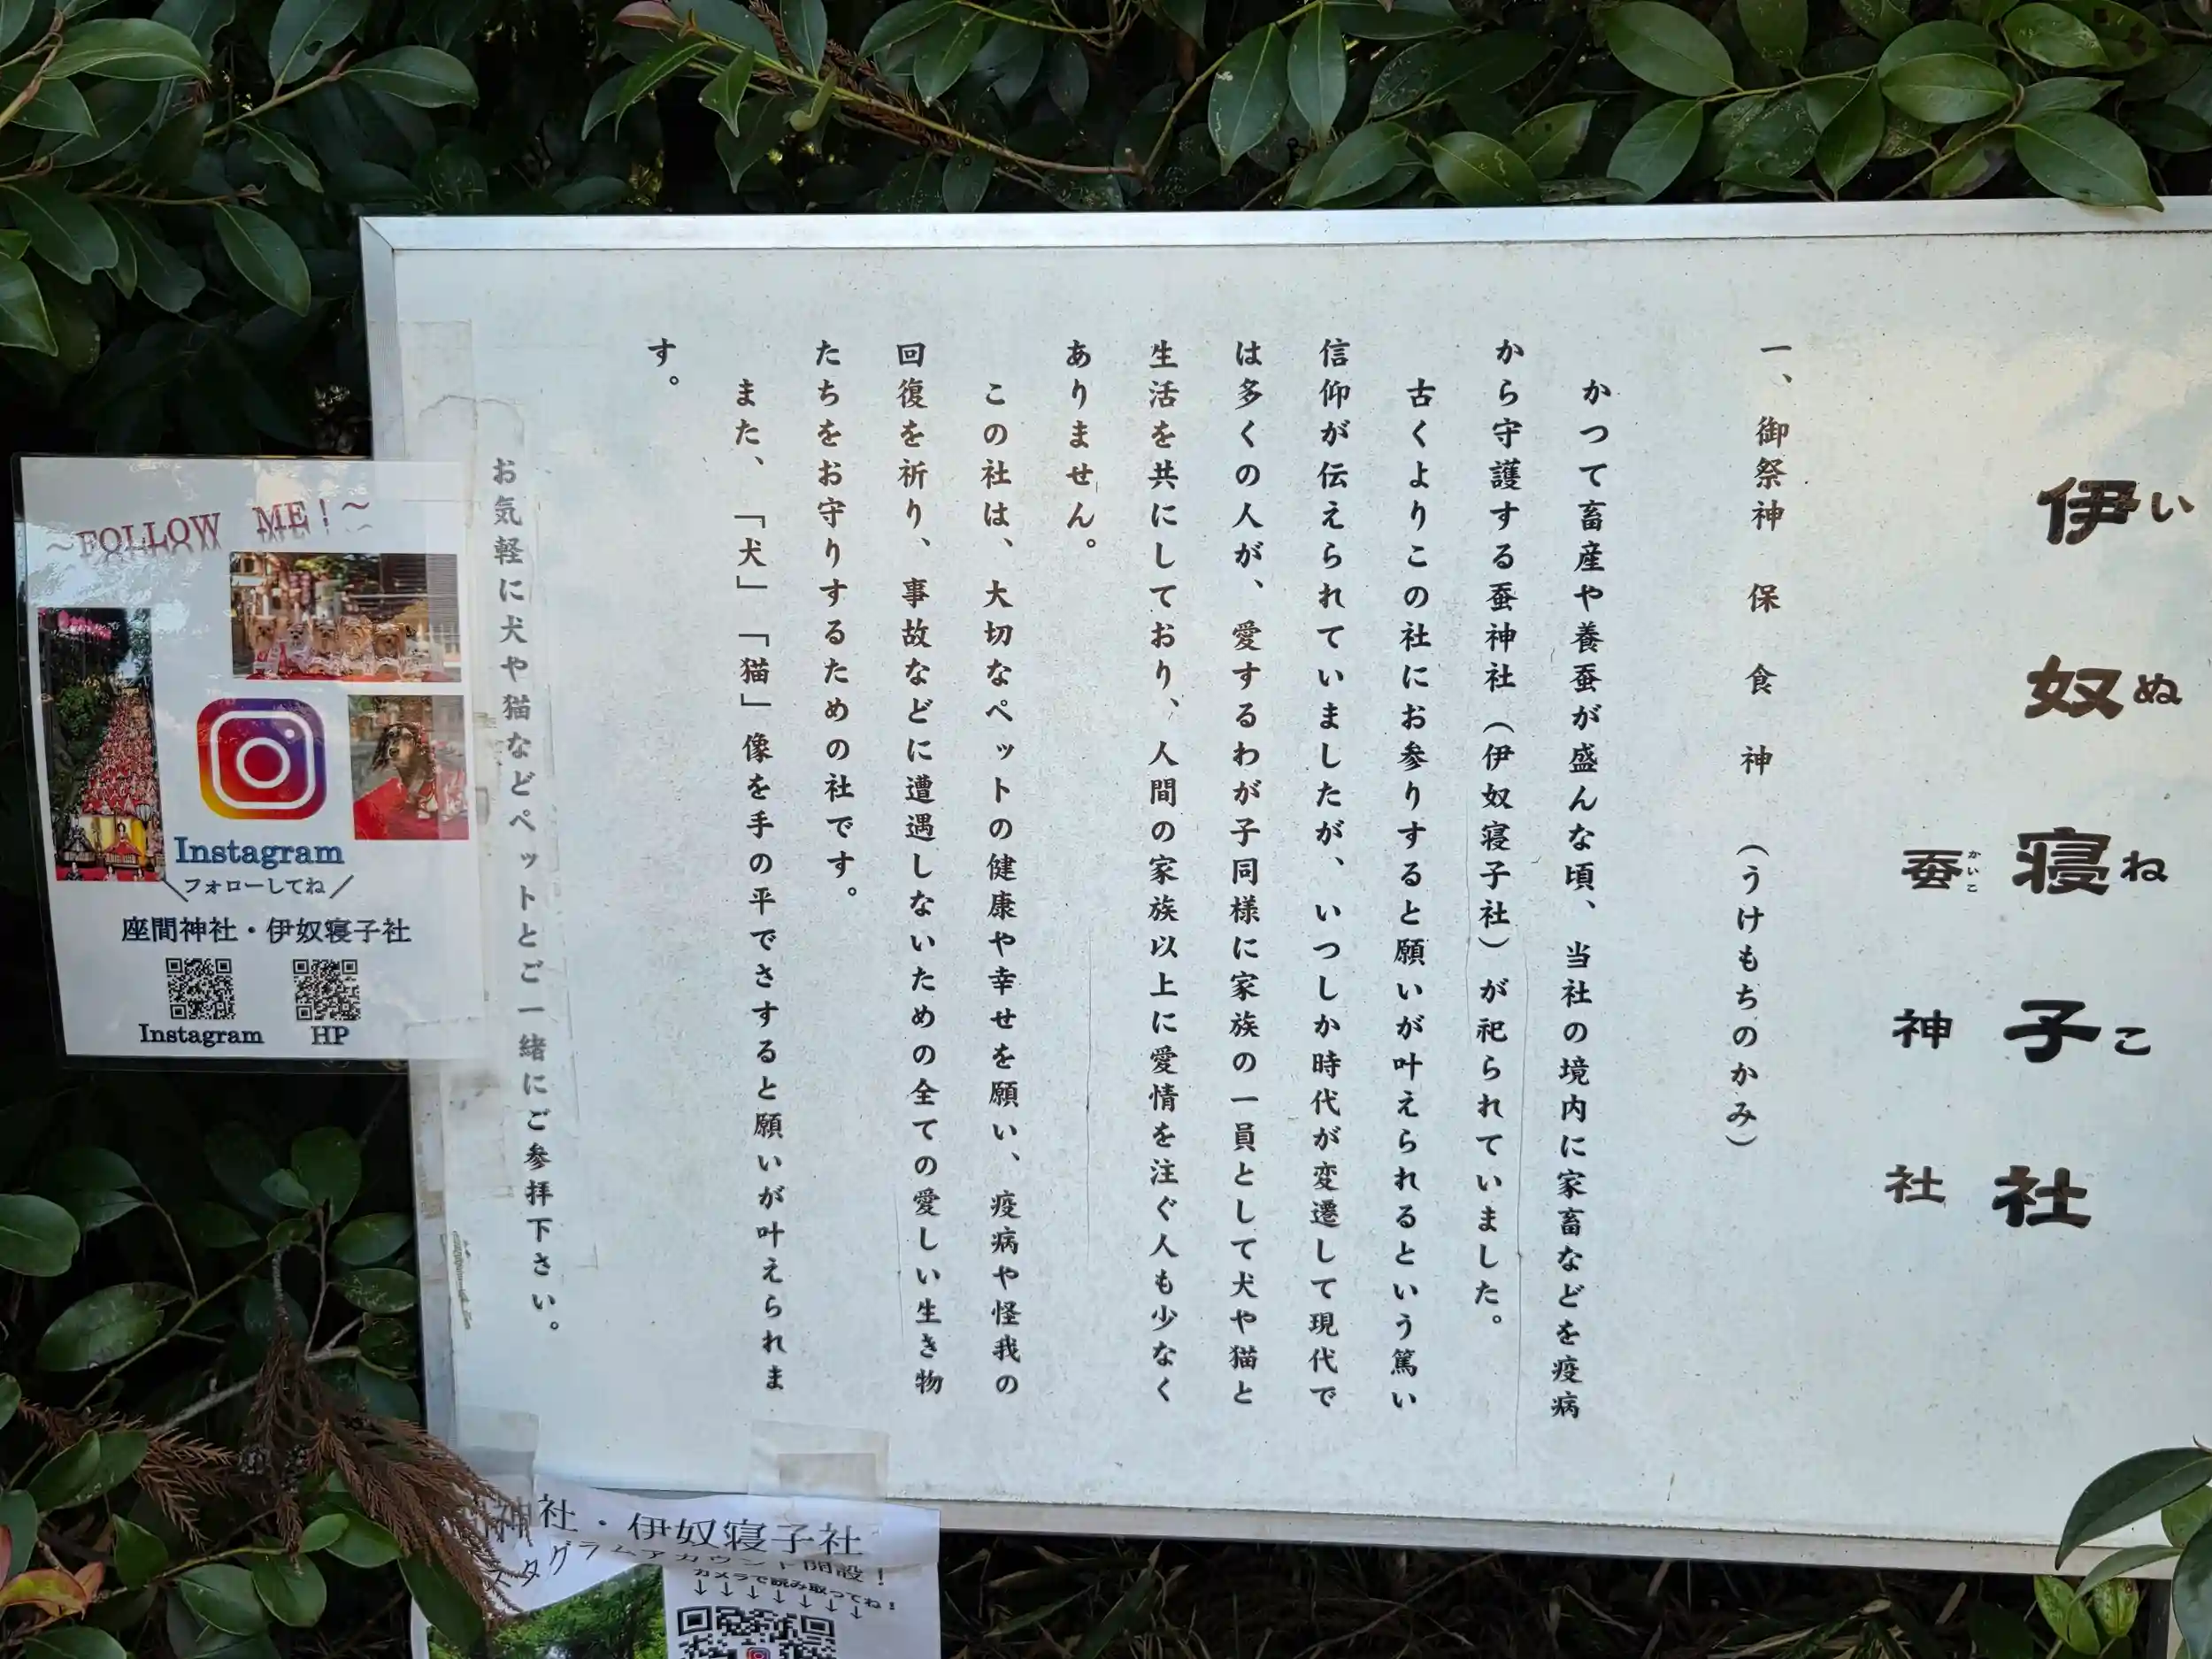 伊奴寝子社
いぬねこ
蚕神社
かいこ
一、御祭神 保食神 （うけもちのかみ）
かつて畜産や養蚕が盛んな頃、当社の境内に家畜などを疫病
から守護する蚕神社（伊奴寝子社）が祀られていました。
古くよりこの社にお参りすると願いが叶えられるという篤い
信仰が伝えられていましたが、いつしか時代が変遷して現代で
は多くの人が、愛するわが子同様に家族の一員として犬や猫と
生活を共にしており、人間の家族以上に愛情を注ぐ人も少なく
ありません。
この社は、大切なペットの健康や幸せを願い、疫病や怪我の
回復を祈り、事故などに遭遇しないための全ての愛しい生き物
たちをお守りするための社です。
また、「犬」「猫」像を手の平でさすると願いが叶えられま
す。
お気軽に犬や猫などペットとご一緒にご参拝下さい。
～FOLLOW ME！～
Instagram
フォローしてね
座間神社・伊奴寝子社
Instagram HP
神社・伊奴寝子社
スタグラムアカウント開設！
カメラで読み取ってね！
↓↓↓↓↓↓↓